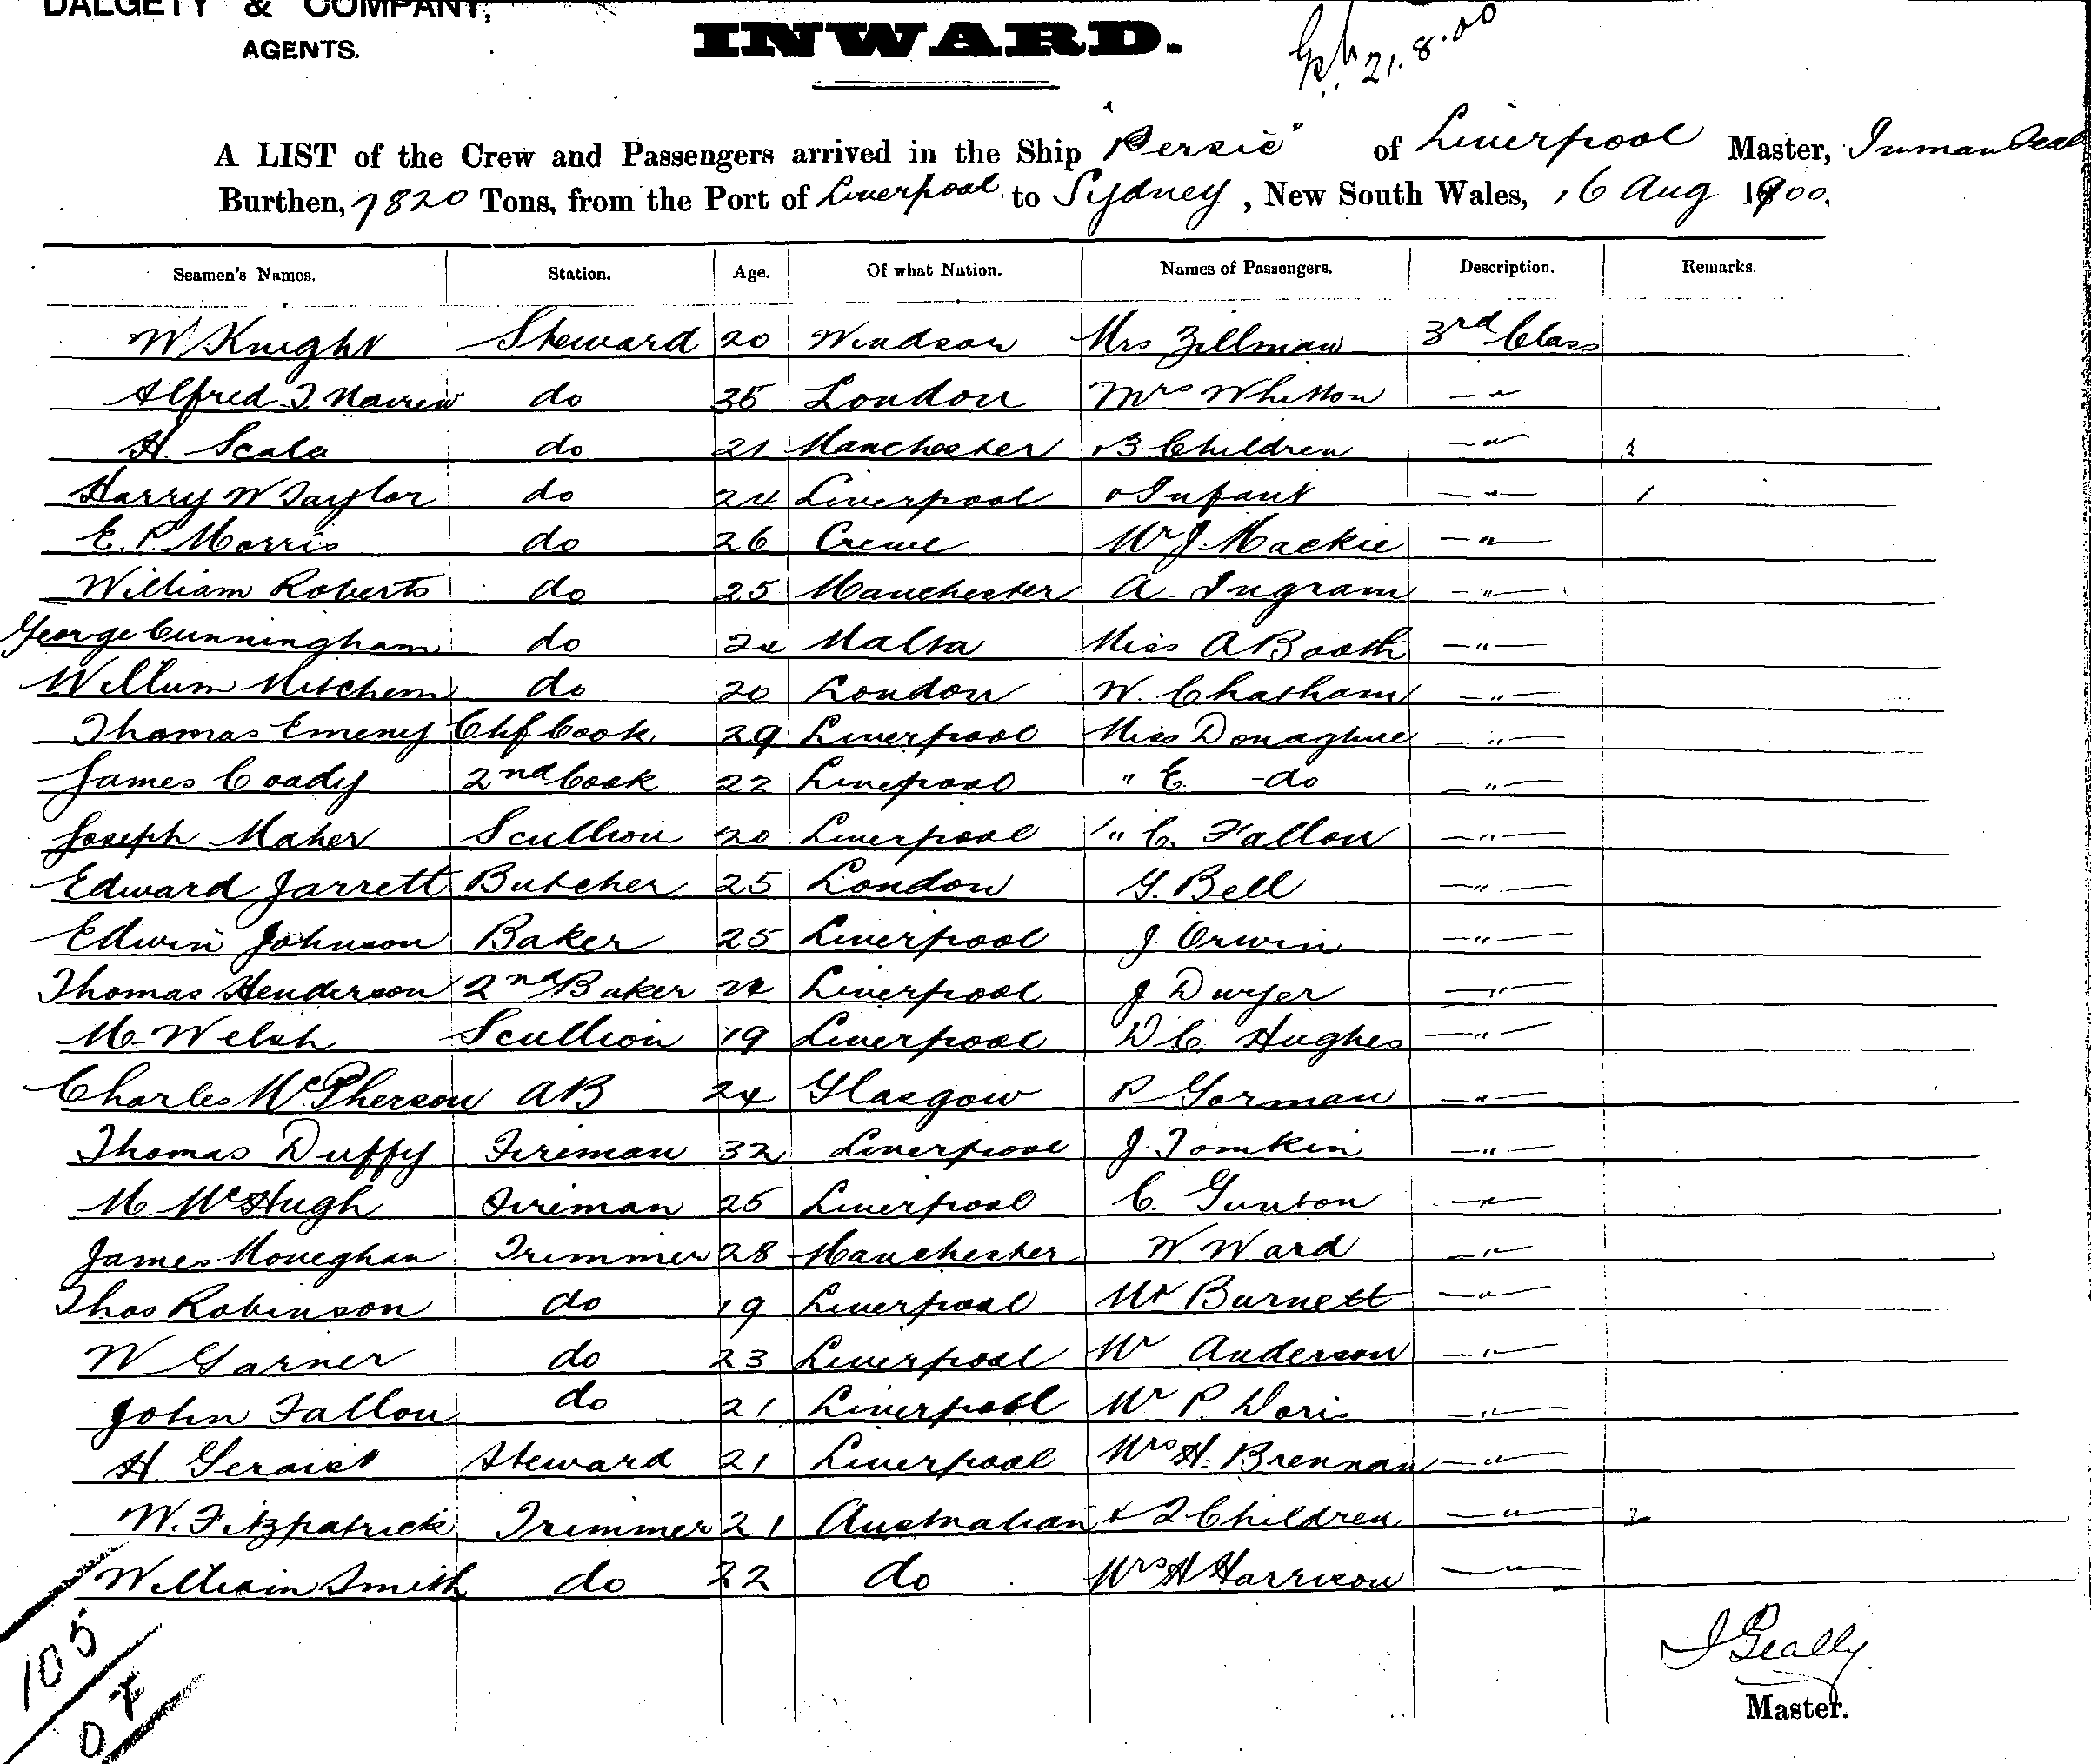 DALGETY & COMPANY,
AGENTS.
INWARD.
21.8.00
A LIST of the Crew and Passengers arrived in the Ship "Persic" of Liverpool Master, Inman
Burthen, 7820 Tons, from the Port of Liverpool to Sydney, New South Wales, 16 Aug 1900.
Seamen's Names. Station. Age. Of what Nation. Names of Passengers. Description. Remarks.
W Knight Steward 20 Windsor Mrs Zillman 3rd Class
Alfred J. do 35 London Mrs Whitton — " —
H. Scala do 21 Manchester 3 Children — " — 3
Harry W Taylor do 24 Liverpool Infant — " — 1
E. P. Morris do 26 Crewe Mr J. Mackie — " —
William Roberts do 25 Manchester A. Ingram — " —
George Cunningham do 24 Malta Miss A Booth — " —
Willum Mitchem do 20 London W. Chatham — " —
Thomas Emeny Chf Cook 29 Liverpool Miss Donaghue — " —
James Coady 2nd Cook 22 Liverpool " E — do — " —
Joseph Maher Scullion 20 Liverpool " C. Fallon — " —
Edward Jarrett Butcher 25 London G. Bell — " —
Edwin Johnson Baker 25 Liverpool J. Orwin — " —
Thomas Henderson 2nd Baker 24 Liverpool J Dwyer — " —
M. Welsh Scullion 19 Liverpool D C. Hughes — " —
Charles McPherson AB 24 Glasgow P Gorman — " —
Thomas Duffy Fireman 32 Liverpool J. Tomkin — " —
M. McHugh Fireman 25 Liverpool C. Gunton — " —
James Moneghan Trimmer 28 Manchester W Ward — " —
Thos Robinson do 19 Liverpool Mr Burnett — " —
W Garner do 23 Liverpool Mr Anderson — " —
John Fallon do 21 Liverpool Mr P. Doris — " —
H. Steward 21 Liverpool Mrs H. Brennan — " —
W. Fitzpatrick Trimmer 21 Australian & 2 Children — " — 2
William Smith do 22 do Mrs H Harrison — " —
105
07
Master.